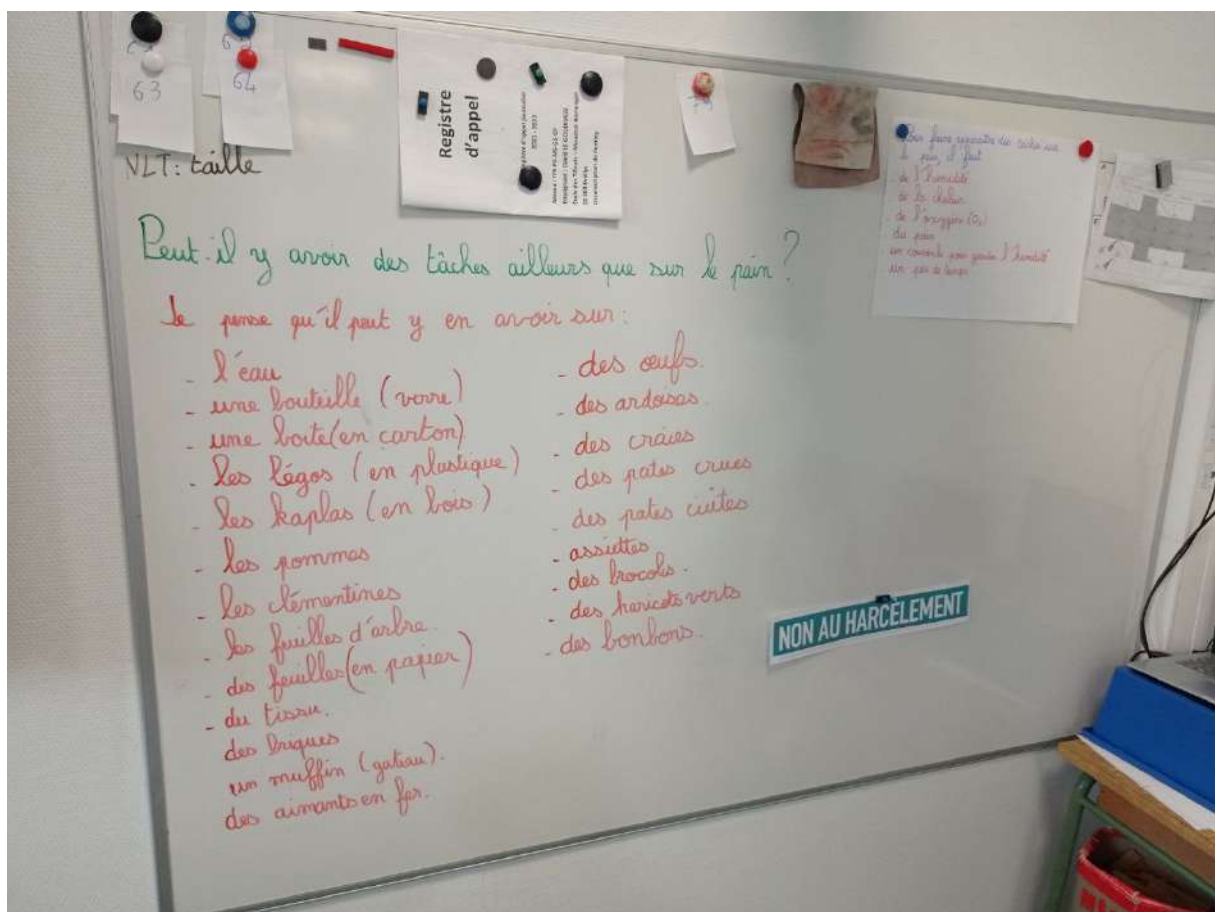 63
64
VLT: taille
Registre
d'appel
2021 - 2022
Pour faire apparaître des taches sur
le pain, il faut
- de l'humidité
- de la chaleur
- de l'oxygène (O₂)
du pain
un couvercle pour garder l'humidité
un peu de temps
Peut-il y avoir des tâches ailleurs que sur le pain ?
Je pense qu'il peut y en avoir sur :
- l'eau
- une bouteille (verre)
- une boite (en carton)
- les légos (en plastique)
- les kaplas (en bois)
- les pommes
- les clémentines
- les feuilles d'arbre.
- des feuilles (en papier)
- du tissu.
des briques
un muffin (gateau).
des aimants en fer.
- des œufs.
- des ardoises.
- des craies
- des pates crues
- des pates cuites
- assiettes
- des brocolis.
- des haricots verts
- des bonbons.
NON AU HARCÈLEMENT